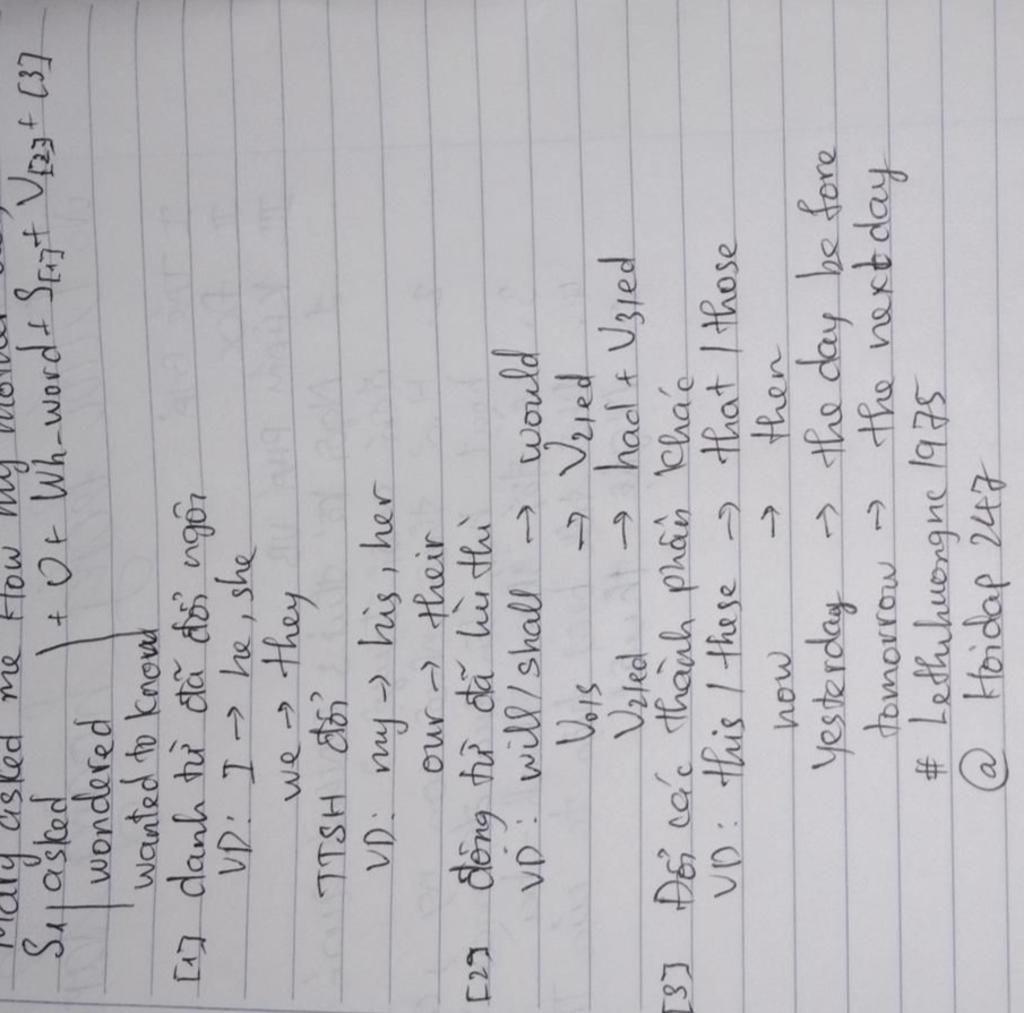 Mary asked me how my mother
S1 | asked | + O + Wh-word + S[1] + V[2] + [3]
wondered
wanted to know
[1] danh từ đã đổi ngôi
VD: I → he, she
we → they
TTSH đổi
VD: my → his, her
our → their
[2] động từ đã lùi thì
VD: will / shall → would
V0/s → V2/ed
V2/ed → had + V3/ed
[3] Đổi các thành phần khác
VD: this / these → that / those
now → then
yesterday → the day be fore
tomorrow → the next day
# Lethuongnc 1975
@ Hoidap 247